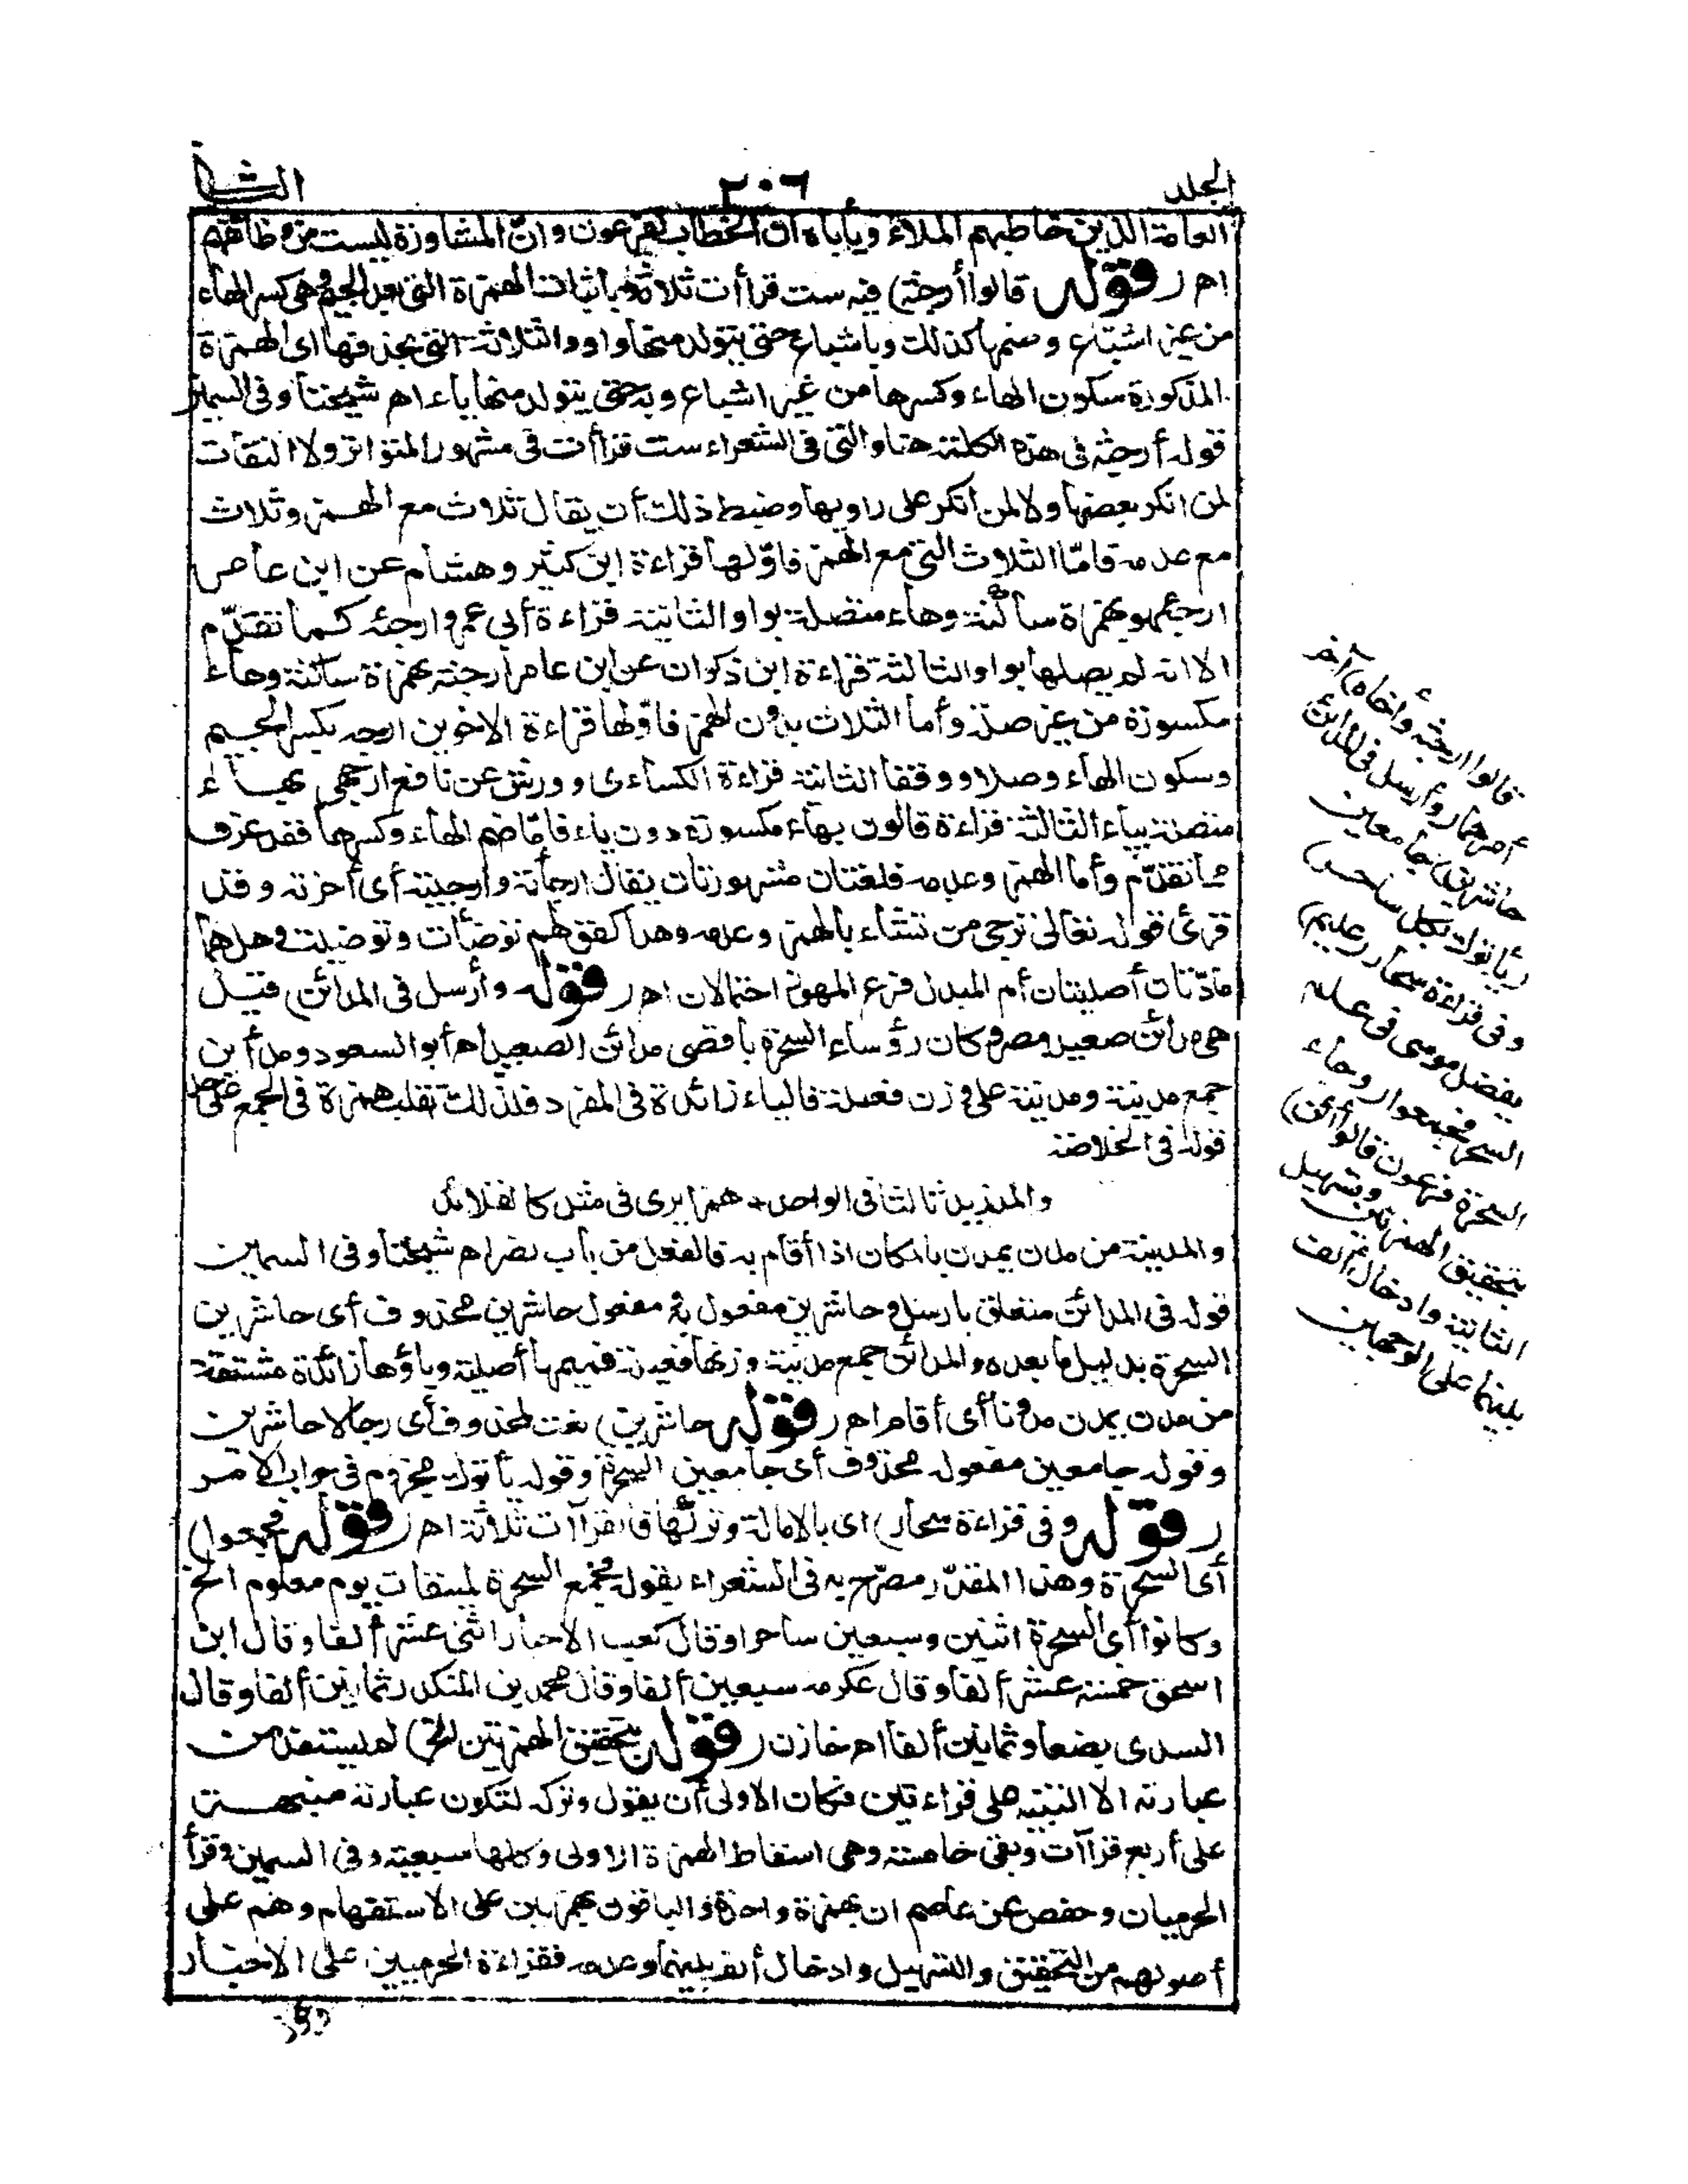 الجلد
٢٠٦
الثانى
العامة الذين خاطبهم الملاء ويأباه ان الخطاب لفرعون وانّ المشاورة ليست من وظائفهم
اه ( قوله قالوا أرجئه) فيه ست قرأأت ثلاثة باثبات الهمزة التى بعد الجيم وهى كسر الهاء
من غير اشباع وضمها كذلك وباشباع حتى يتولد منها واو والثلاثة التى بحذفها اى الهمزة
المذكورة سكون الهاء وكسرها من غير اشباع وبه حتى يتولد منها ياء اه شيخنا وفى السمين
قوله أرجئه فى هذه الكلمة هنا والتى فى الشعراء ست قراأت فى مشهور المتواتر ولا التفات
لمن انكر بعضها ولا لمن أنكر على راويها وضبط ذلك أن يقال ثلاث مع الهمز وثلاث
مع عدمه فامّا الثلاث التى مع الهمز فاوّلها قراءة ابن كثير وهشام عن ابن عامر
ارجئهو بهمزة ساكنة وهاء متصلة بواو والثانية قراءة أبى عمرو ارجئه كما تقدّم
الا انه لم يصلها بواو والثالثة قراءة ابن ذكوان عن ابن عامر ارجئه بهمزة ساكنة وهاء
مكسورة من غير صلة وأما الثلاث بدون الهمز فاوّلها قراءة الاخوين ارجه بكسر الجيم
وسكون الهاء وصلا ووقفا الثانية قراءة الكساءى وورش عن نافع ارجهى بهاء
متصلة بياء الثالثة قراءة قالون بهاء مكسورة دون ياء فامّا ضم الهاء وكسرها فقد عرف
مما تقدّم وأما الهمز وعدمه فلغتان مشهورتان يقال ارجأته وأرجيته أى أخرته وقد
قرئ قوله تعالى ترجى من تشاء بالهمز وعدمه وهذا كقولهم توضأت وتوضيت وهل هما
مادّتان أصليتان أم المبدل فرع المهموز احتمالان اه ( قوله وأرسل فى المدائن) قيل
هى مدائن صعيد مصر وكان رؤساء السحرة بأقصى مدائن الصعيد اه أبو السعود ومدأين
جمع مدينة ومدينة على وزن فعيلة فالياء زائدة فى المفرد فلذلك تقلب همزة فى الجمع على حد
قوله فى الخلاصة
والمد زيد ثالثا فى الواحد \* همزا يرى فى مثل كالقلائد
والمدينة من مدن يمدن بالمكان اذا أقام به فالفعل من باب نصر اه شيخنا وفى السمين
قوله فى المدائن متعلق بارسل وحاشرين مفعول به ومفعول حاشرين محذوف أى حاشرين
السحرة بدليل ما بعده والمدائن جمع مدينة وزنها فعيلة فميمها أصلية وياؤها زائدة مشتقة
من مدن يمدن مدونا أى أقام اه ( قوله حاشرين) نعت لمحذوف أى رجالا حاشرين
وقوله جامعين مفعوله محذوف أى جامعين السحرة وقوله يأتوك مجزوم فى جواب الامر
( قوله وفى قراءة سحار) اى بالامالة وتركها فالقراآت ثلاثة اه ( قوله فجمعوا)
أى السحرة وهذا المقدّر مصرّح به فى الشعراء بقوله فجمع السحرة لميقات يوم معلوم الخ
وكانوا أى السحرة اثنين وسبعين ساحرا وقال كعب الاحبار اثنى عشر ألفا وقال ابن
اسحق خمسة عشر ألفا وقال عكرمه سبعين ألفا وقال محمد بن المنكدر ثمانين ألفا وقال
السدى بضعا وثمانين ألفا اه خازن ( قوله بتحقيق الهمزتين الخ) لم يستفد من
عبارته الا التنبيه على قراءتين فكان الاولى أن يقول وتركه لتكون عبارته منبهة
على أربع قراآت وبقى خامسة وهى اسقاط الهمزة الاولى وكلها سبعية وفى السمين وقرأ
الحرميان وحفص عن عاصم ان بهمزة واحدة والباقون بهمزتين على الاستفهام وهم على
أصولهم من التحقيق والتسهيل وادخال ألف بينهما وعدمه فقراءة الحرميين على الاخبار
قالوا ارجئه وأخاه) أخر
أمرهما (وأرسل فى المدائن
حاشرين) جامعين
(يأتوك بكل ساحر)
وفى قراءة سحار (عليم)
يفضل موسى فى علم
السحر فجمعوا (وجاء
السحرة فرعون قالوا أئن)
بتحقيق الهمزتين وتسهيل
الثانية وادخال ألف
بينهما على الوجهين